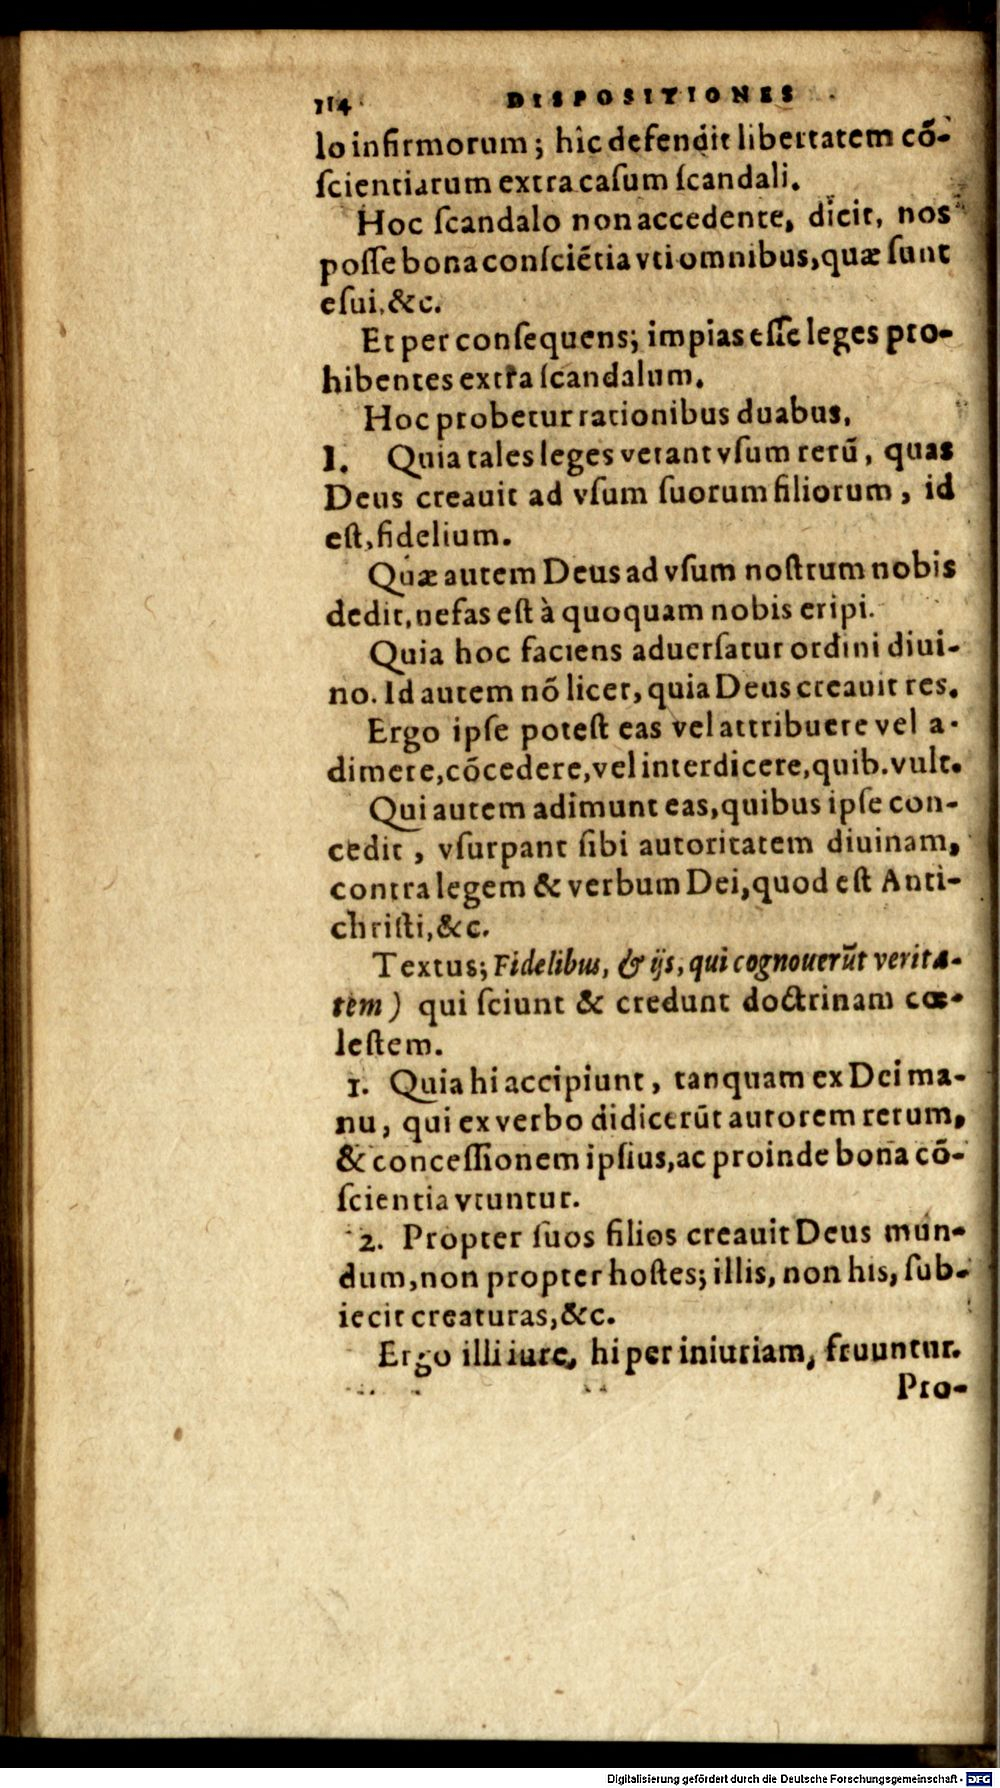 114 DISPOSITIONES
lo infirmorum; hic defendit libertatem cõ-
ſcientiarum extra caſum ſcandali.
Hoc ſcandalo non accedente, dicit, nos
poſſe bona conſciẽtia vti omnibus, quæ ſunt
eſui, &c.
Et per conſequens; impias eſſe leges pro-
hibentes extra ſcandalum.
Hoc probetur rationibus duabus,
I. Quia tales leges vetant vſum rerũ, quas
Deus creauit ad vſum ſuorum filiorum, id
eſt, fidelium.
Quæ autem Deus ad vſum noſtrum nobis
dedit, nefas eſt à quoquam nobis eripi.
Quia hoc faciens aduerſatur ordini diui-
no. Id autem nõ licet, quia Deus creauit res.
Ergo ipſe poteſt eas vel attribuere vel a-
dimere, cõcedere, vel interdicere, quib. vult.
Qui autem adimunt eas, quibus ipſe con-
cedit, vſurpant ſibi autoritatem diuinam,
contra legem & verbum Dei, quod eſt Anti-
chriſti, &c.
Textus; Fidelibus, & ijs, qui cognouerũt verita-
tem) qui ſciunt & credunt doctrinam cœ-
leſtem.
1. Quia hi accipiunt, tanquam ex Dei ma-
nu, qui ex verbo didicerũt autorem rerum,
& conceſſionem ipſius, ac proinde bona cõ-
ſcientia vtuntur.
2. Propter ſuos filios creauit Deus mun-
dum, non propter hoſtes; illis, non his, ſub-
iecit creaturas, &c.
Ergo illi iure, hi per iniuriam, fruuntur.
Pro-
Digitalisierung gefördert durch die Deutsche Forschungsgemeinschaft - DFG